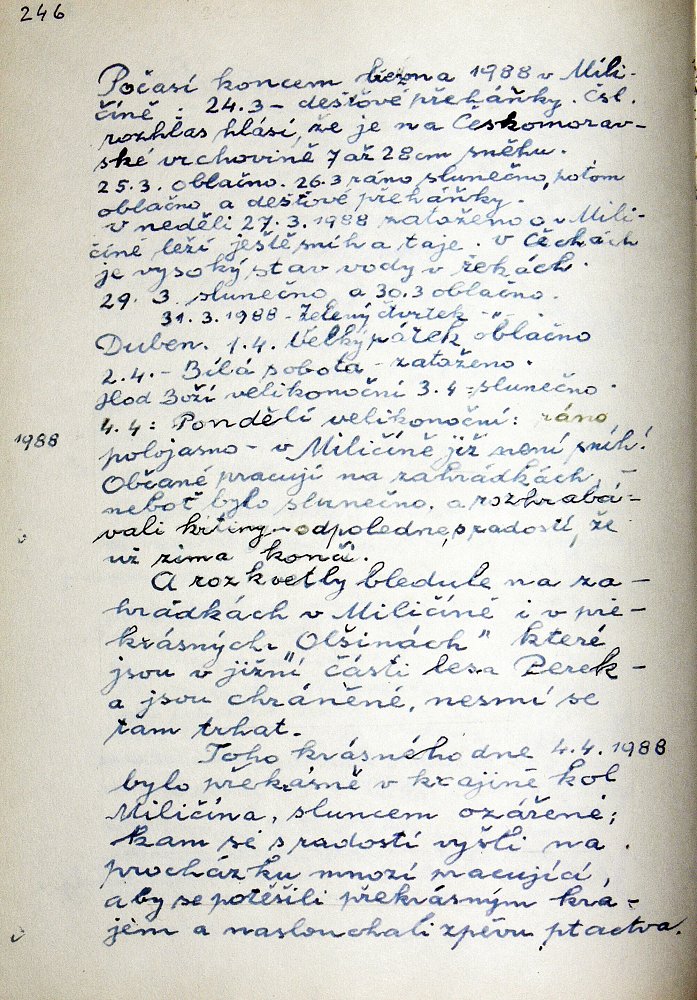 246
Počasí koncem března 1988 v Mili-
číně: 24.3 - dešťové přeháňky. Čsl.
rozhlas hlásí, že je na Českomorav-
ské vrchovině 7 až 28 cm sněhu.
25.3. oblačno. 26.3 ráno slunečno, potom
oblačno a dešťové přeháňky.
V neděli 27.3.1988 zataženo a v Mili-
číně leží ještě sníh a taje. V Čechách
je vysoký stav vody v řekách.
29.3. slunečno a 30.3 oblačno.
31.3.1988 - Zelený čtvrtek - " -.
Duben. 1.4. Velký pátek oblačno
2.4. - Bílá sobota - zataženo.
Hod Boží velikonoční 3.4 = slunečno.
4.4: Pondělí velikonoční: ráno
1988
polojasno - v Miličíně již není sníh!
Občané pracují na zahrádkách, -
neboť bylo slunečno. a rozhrabá-
vali krtiny - odpoledne, s radostí, že
už zima končí.
A rozkvetly bledule na za-
hrádkách v Miličíně i v pře-
krásných "Olšinách" které
jsou v jižní části lesa Perek -
a jsou chráněné, nesmí se
tam trhat.
Toho krásného dne 4.4.1988
bylo překrásně v krajině kol
Miličína, sluncem ozářené;
kam se s radostí vyšli na
procházku mnozí pracující,
aby se potěšili překrásným kra-
jem a naslouchali zpěvu ptactva.